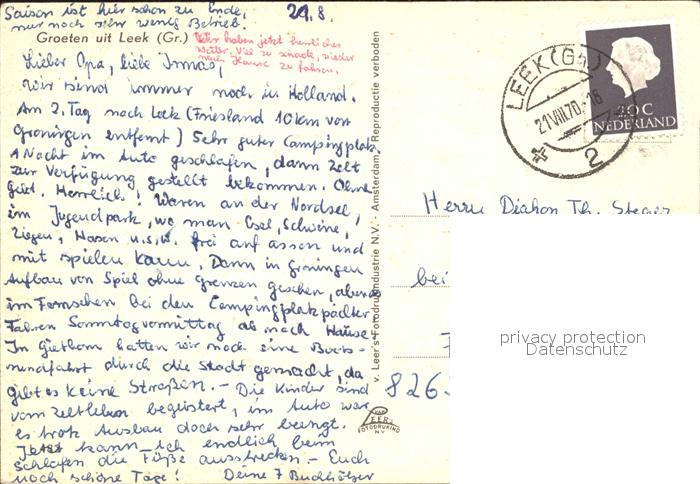 Saison ist hier schon zu Ende,
nur noch sehr wenig Betrieb.
21.8.
Groeten uit Leek (Gr.)
Wir haben jetzt herrliches
Wetter. Viel zu schade, wieder
nach Hause zu fahren.
Lieber Opa, liebe Irmas,
wir sind immer noch in Holland.
Am 2. Tag nach Leek (Friesland 10 km vor
Groningen entfernt) Sehr guter Campingplatz.
1 Nacht im Auto geschlafen, dann Zelt
zur Verfügung gestellt bekommen. Ohne
Geld. Herrlich! Waren an der Nordsee,
im Jugendpark, wo man Esel, Schweine,
Ziegen, Hasen u.s.w. frei anfassen und
mit spielen kann. Dann in Groningen
Aufbau von Spiel ohne Grenzen gesehen, abends
im Fernsehen bei den Campingplatzpächter
Fahren Sonntagvormittag ab nach Hause
In Giethorn hatten wir noch eine Boots-
rundfahrt durch die Stadt gemacht, da
gibt es keine Straßen. – Die Kinder sind
vom Zeltleben begeistert, im Auto war
es trotz Ausbau doch sehr beengt.
Jetzt kann ich endlich beim
Schlafen die Füße ausstrecken. – Euch
noch schöne Tage! Deine 7 Buchhölzer
v. Leer's Fotodrukindustrie N.V. - Amsterdam - Reproductie verboden
VAN
LEER'S
FOTODRUKIND
N.V.
LEEK (Gr.)
21.VIII.70.-16
2
40 C
NEDERLAND
Herrn Diakon Th. Steger
bei
7
826-
privacy protection
Datenschutz